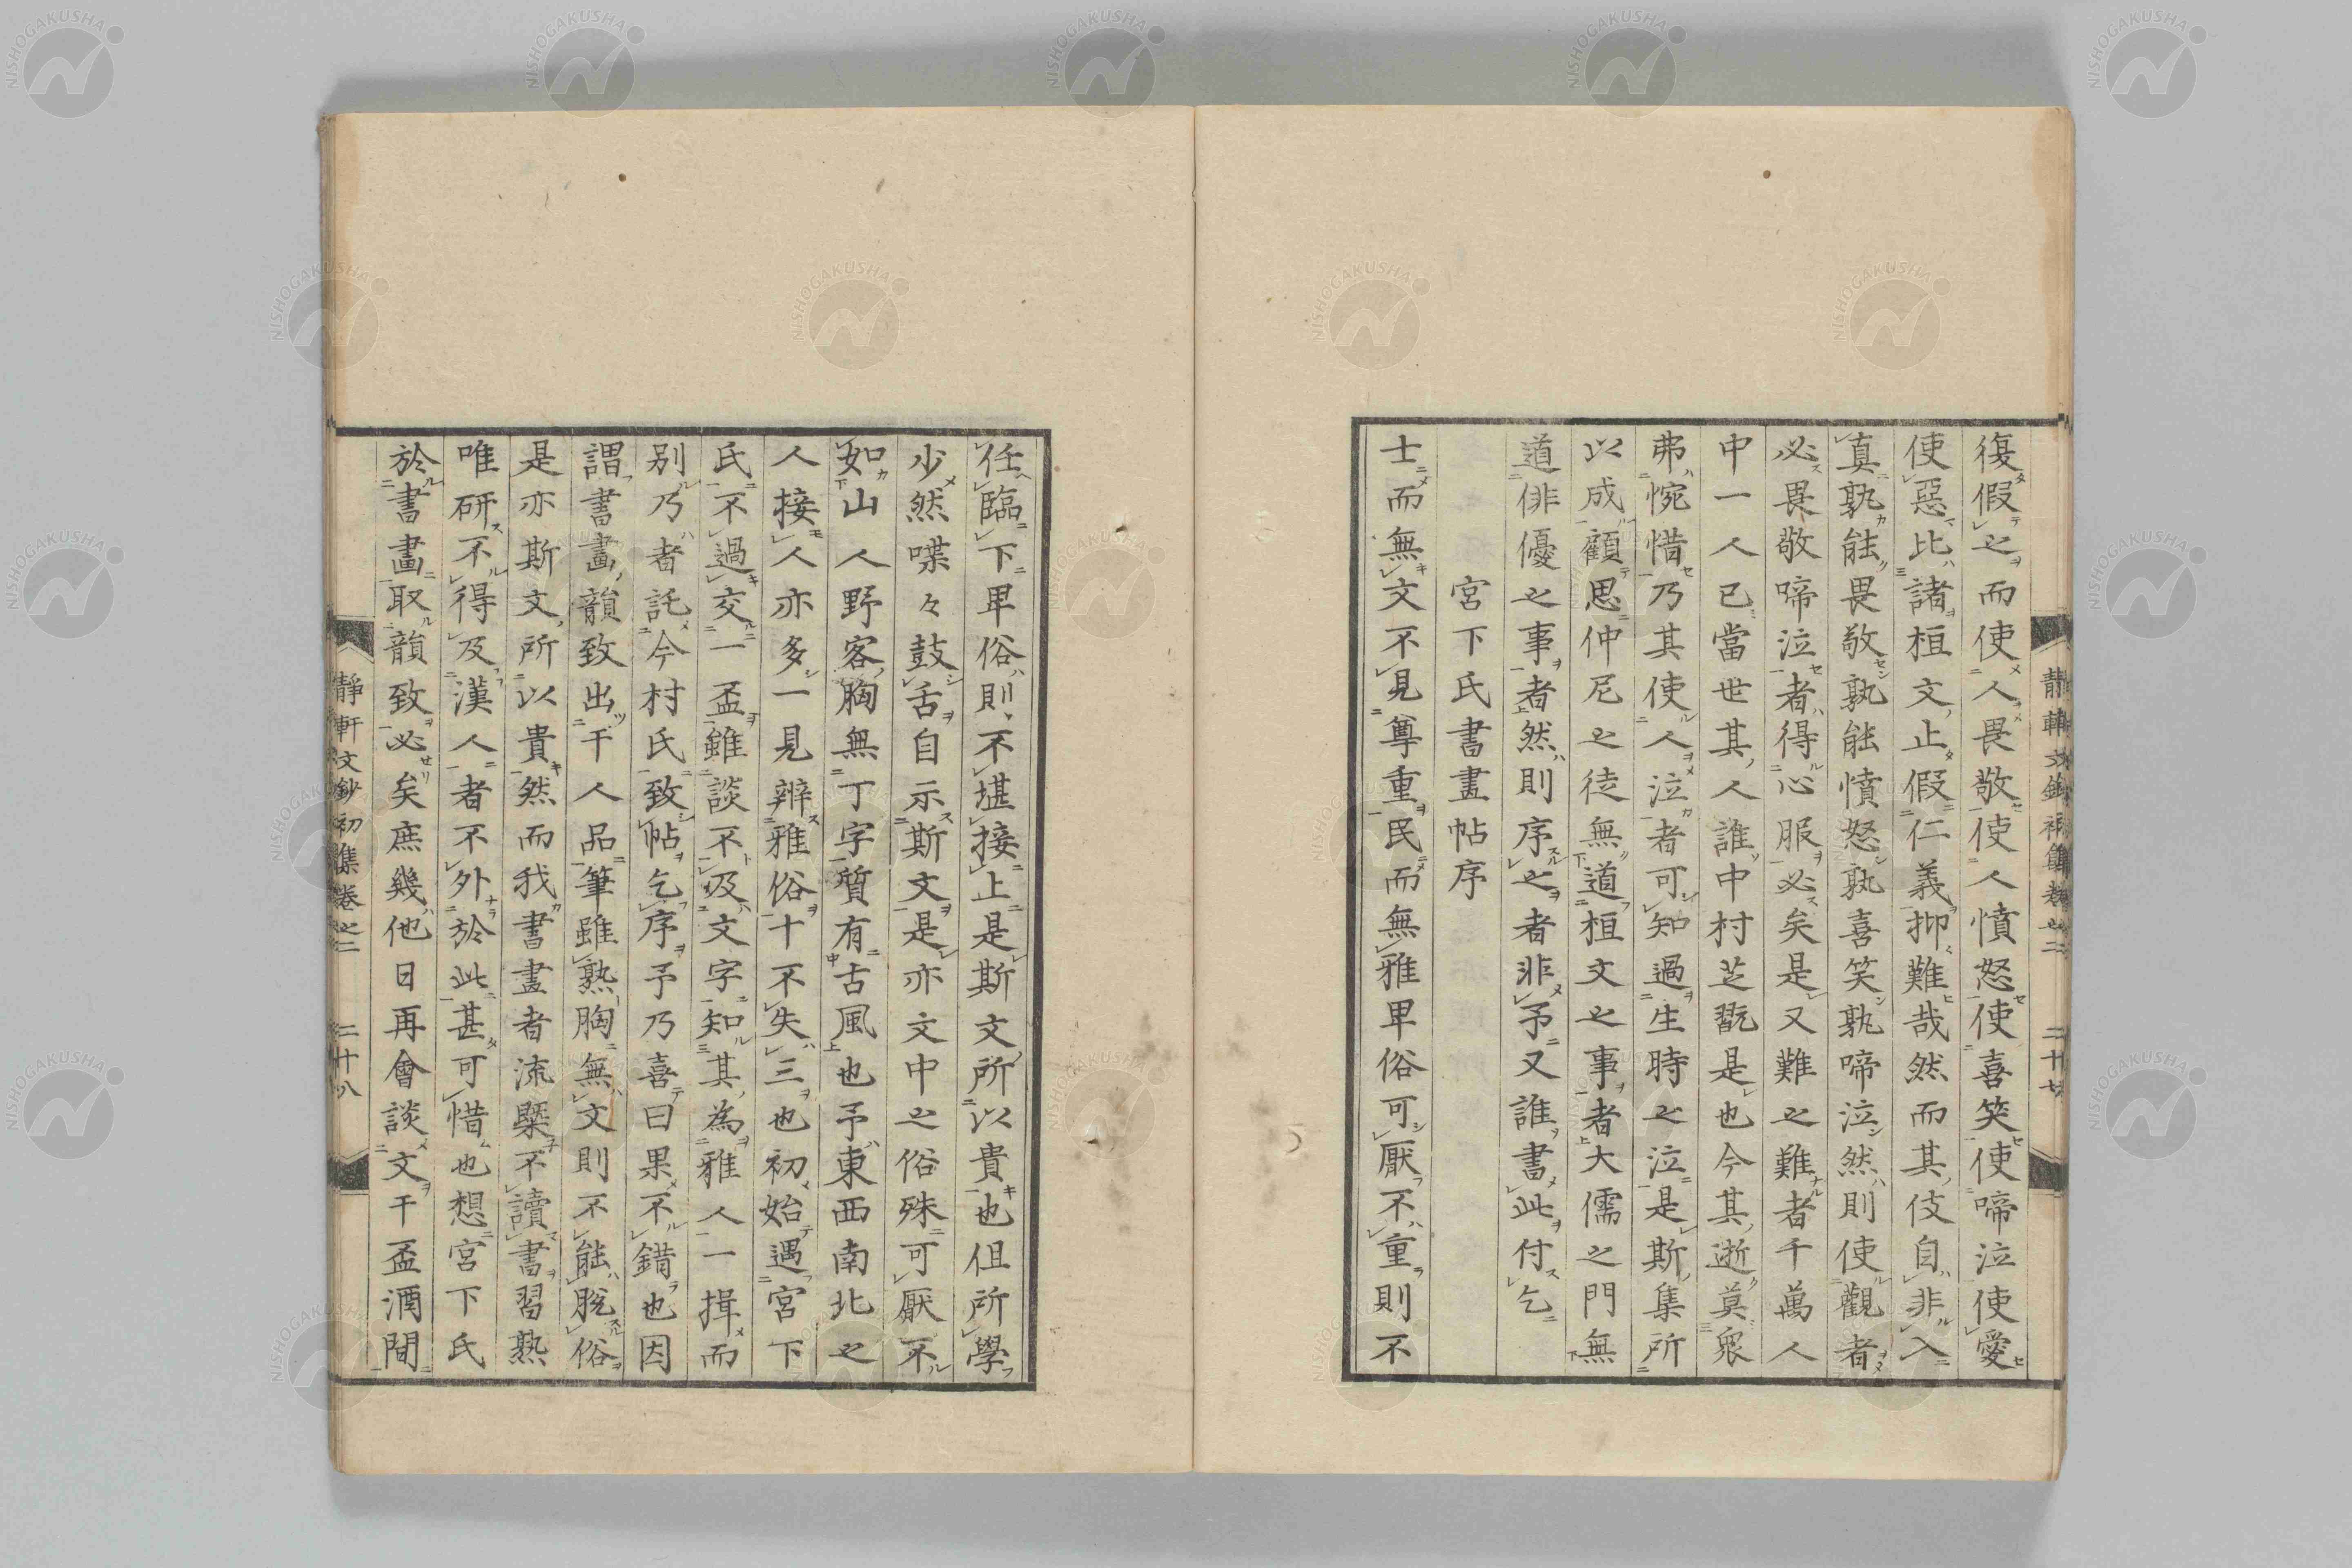 復假之而使人畏敬使人憤怒使喜笑使啼泣使愛
使惡比諸桓文止假仁義抑難哉然而其伎自非入
真孰能畏敬孰能憤怒孰喜笑孰啼泣然則使觀者
必畏敬啼泣者得心服必矣是又難之難者千萬人
中一人已當世其人誰中村芝翫是也今其逝莫衆
弗惋惜乃其使人泣者可知過生時之泣是斯集所
以成顧思仲尼之徒無道桓文之事者大儒之門無
道俳優之事者然則序之者非予又誰書此付乞
宮下氏書畫帖序
士而無文不見尊重民而無雅卑俗可厭不重則不
靜軒文鈔初集卷之二 二十七
任臨下卑俗則不堪接上是斯文所以貴也但所學
少然喋々鼓舌自示斯文是亦文中之俗殊可厭不
如山人野客胸無丁字質有古風也予東西南北之
人接人亦多一見辨雅俗十不失三也初始遇宮下
氏不過交一盃雖談不及文字知其為雅人一揖而
別乃者託今村氏致帖乞序予乃喜曰果不錯也因
謂書畫韻致出于人品筆雖熟胸無文則不能脫俗
是亦斯文所以貴然而我書畫者流槩不讀書習熟
唯研不得及漢人者不外於此甚可惜也想宮下氏
於書畫取韻致必矣庶幾他日再會談文于盃酒間
靜軒文鈔初集卷之二 二十八
NISHOGAKUSHA